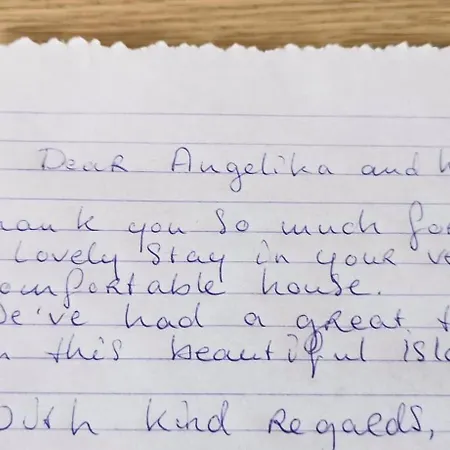 Dear Angelika and H
hank you so much for
lovely stay in your ve
omfortable house.
e've had a great t
n this beautiful isl
ith kind regards,